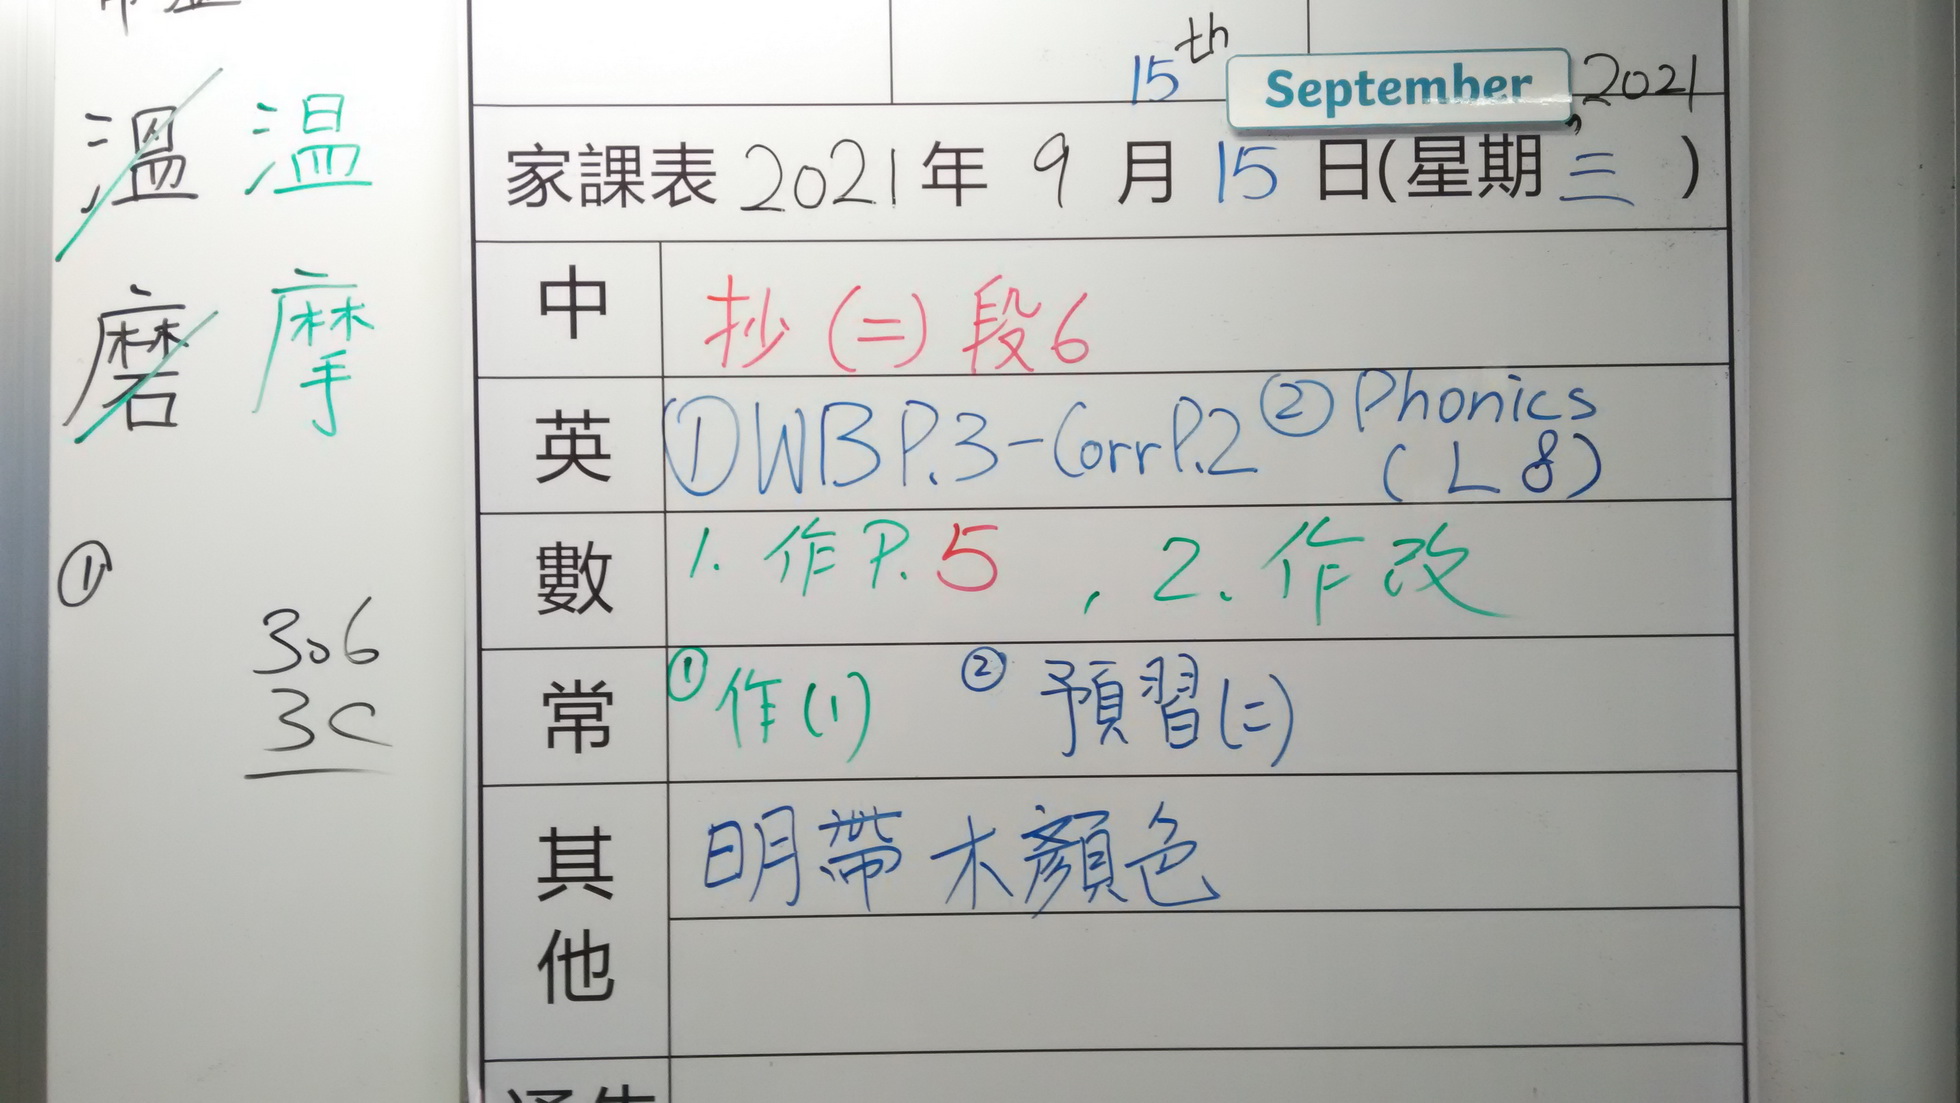 15th September, 2021
家課表 2021年 9 月 15 日(星期三)
中 抄(二)段6
英 ①WB P.3-Corr P.2 ②Phonics
(L8)
數 1. 作P.5 , 2. 作改
常 ①作(1) ②預習(二)
其他 明帶木顏色
溫 温
磨 摩
①
306
3C